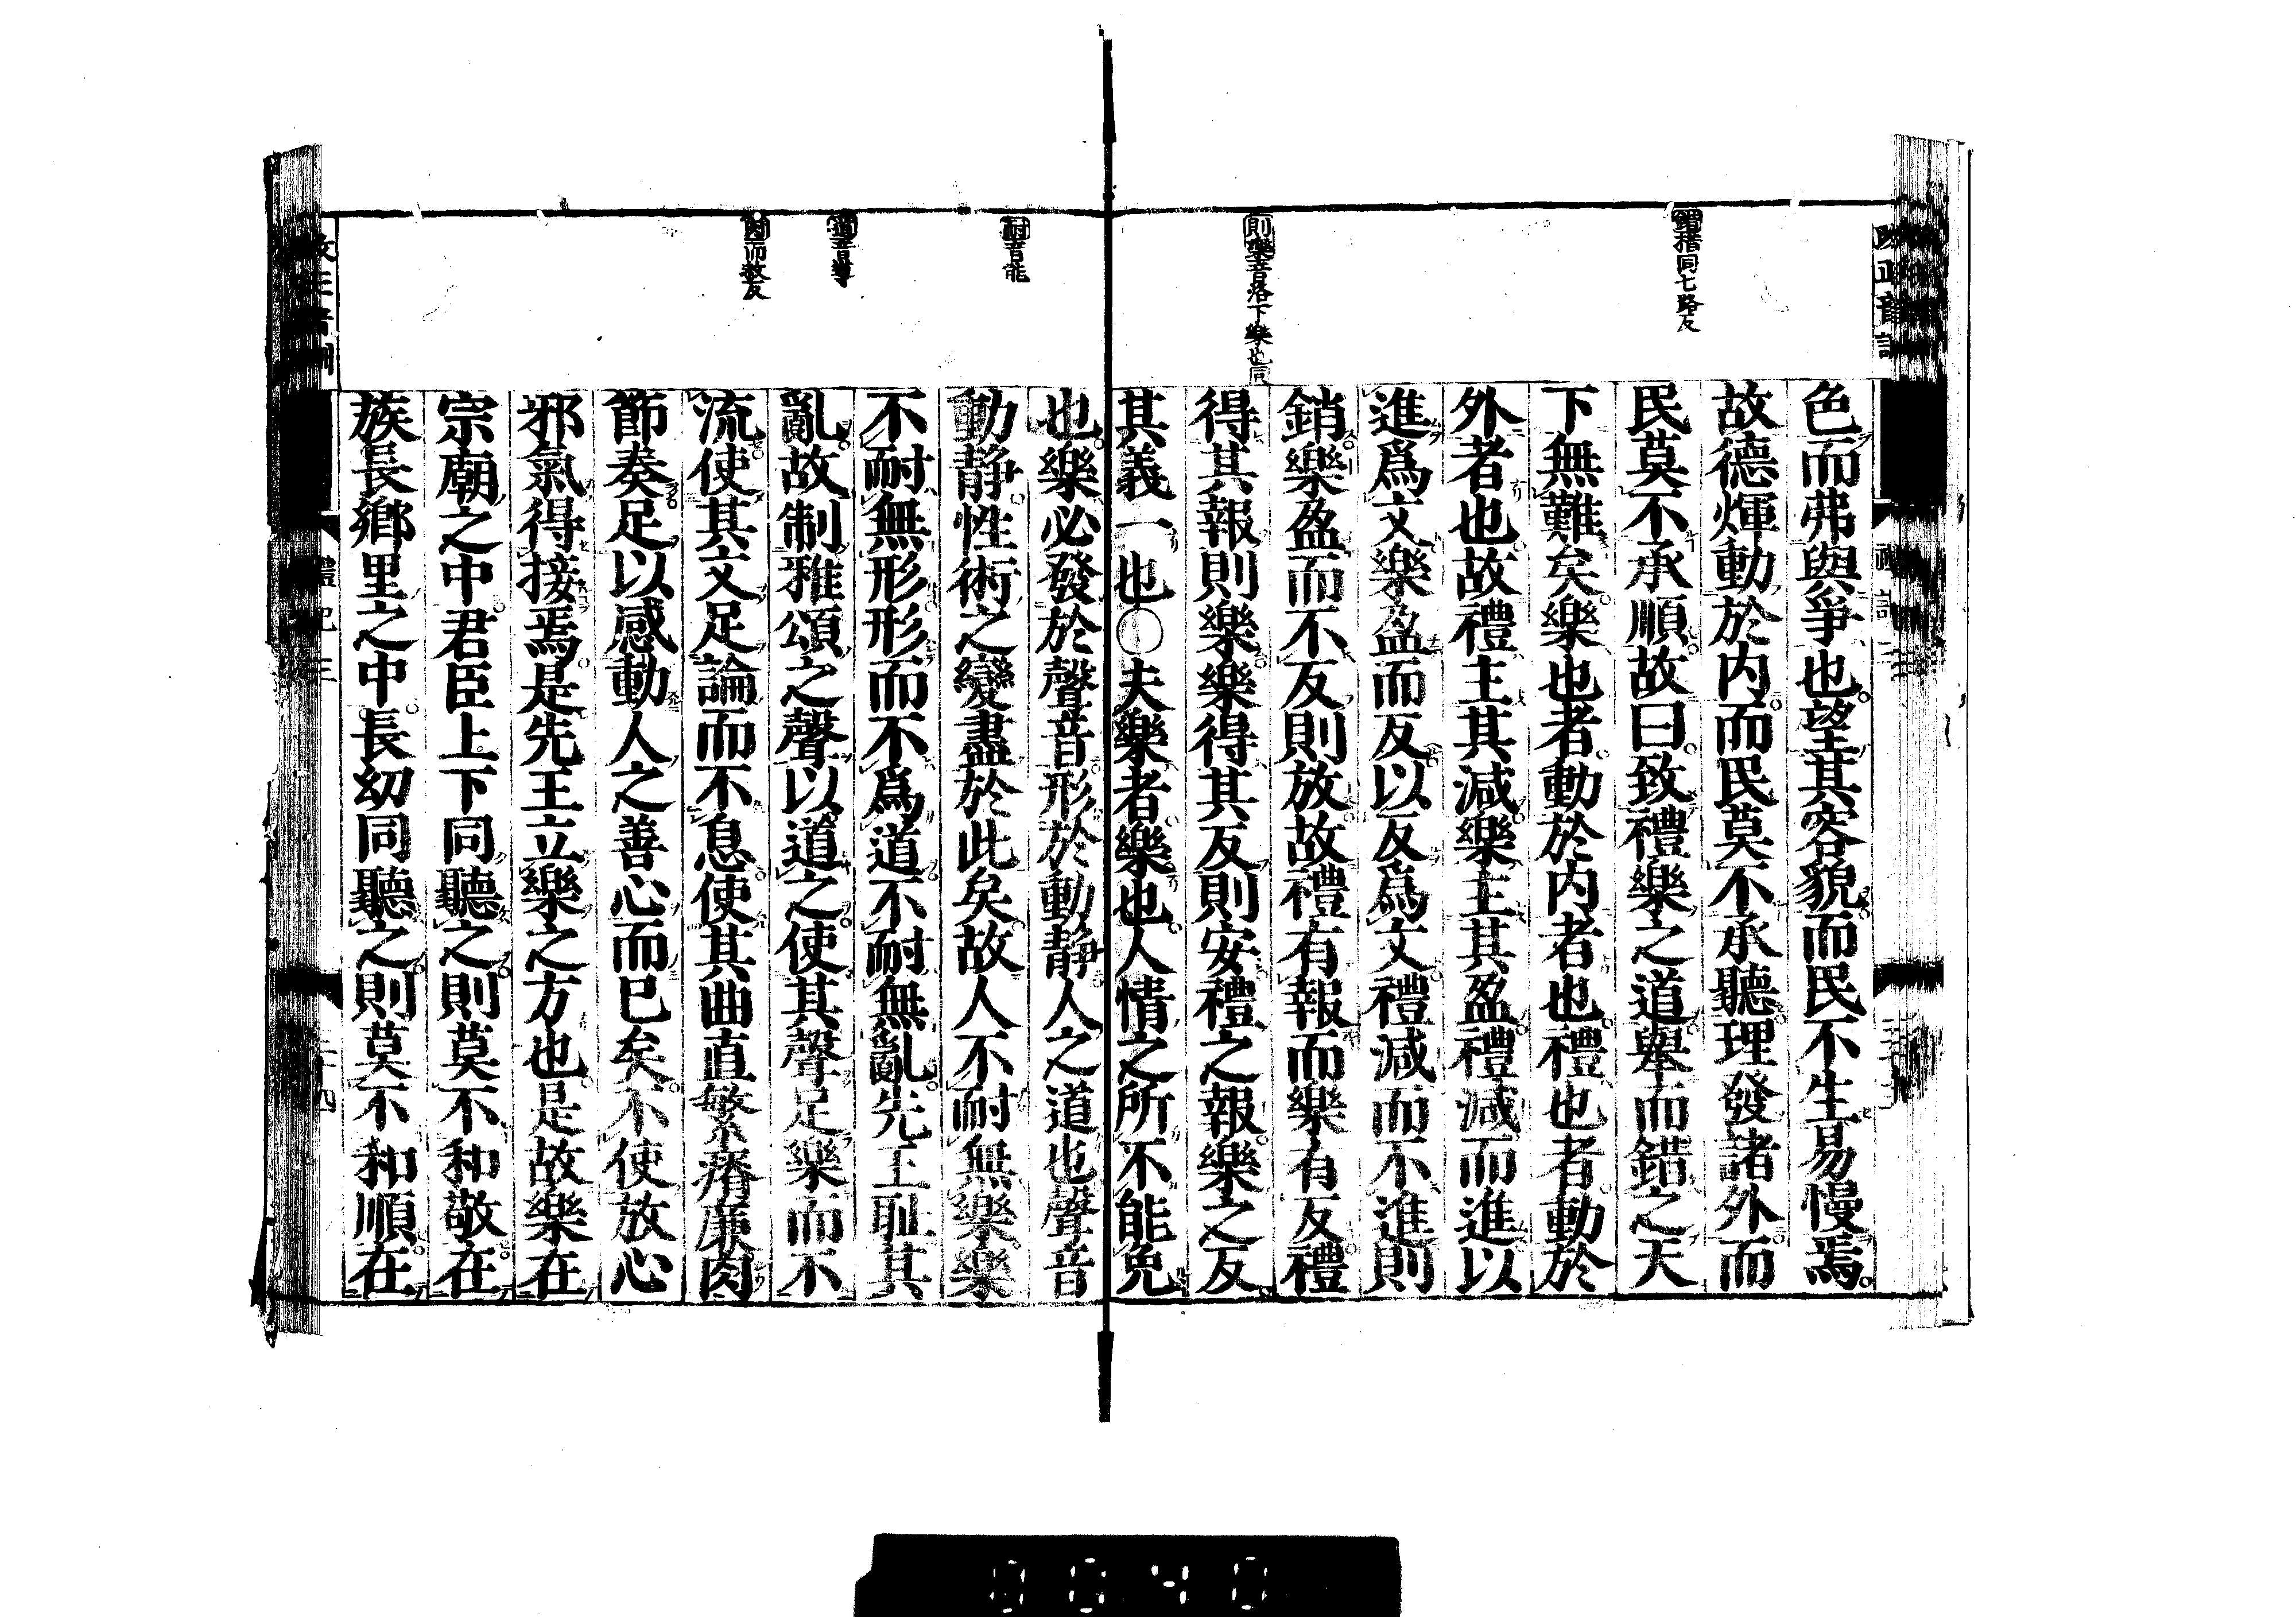 錯措同七路反
則樂音洛下樂也同
色而弗與爭也望其容貌而民不生易慢焉
故德煇動於内而民莫不承聽理發諸外而
民莫不承順故曰致禮樂之道舉而錯之天
下無難矣樂也者動於内者也禮也者動於
外者也故禮主其減樂主其盈禮減而進以
進爲文樂盈而反以反爲文禮減而不進則
銷樂盈而不反則放故禮有報而樂有反禮
得其報則樂樂得其反則安禮之報樂之反
其義一也○夫樂者樂也人情之所不能免
耐音能
道音導
肉而救反
也樂必發於聲音形於動静人之道也聲音
動静性術之變盡於此矣故人不耐無樂樂
不耐無形形而不爲道不耐無亂先王耻其
亂故制雅頌之聲以道之使其聲足樂而不
流使其文足論而不息使其曲直繁瘠廉肉
節奏足以感動人之善心而已矣不使放心
邪氣得接焉是先王立樂之方也是故樂在
宗廟之中君臣上下同聽之則莫不和敬在
族長鄉里之中長幼同聽之則莫不和順在
禮記三
0040